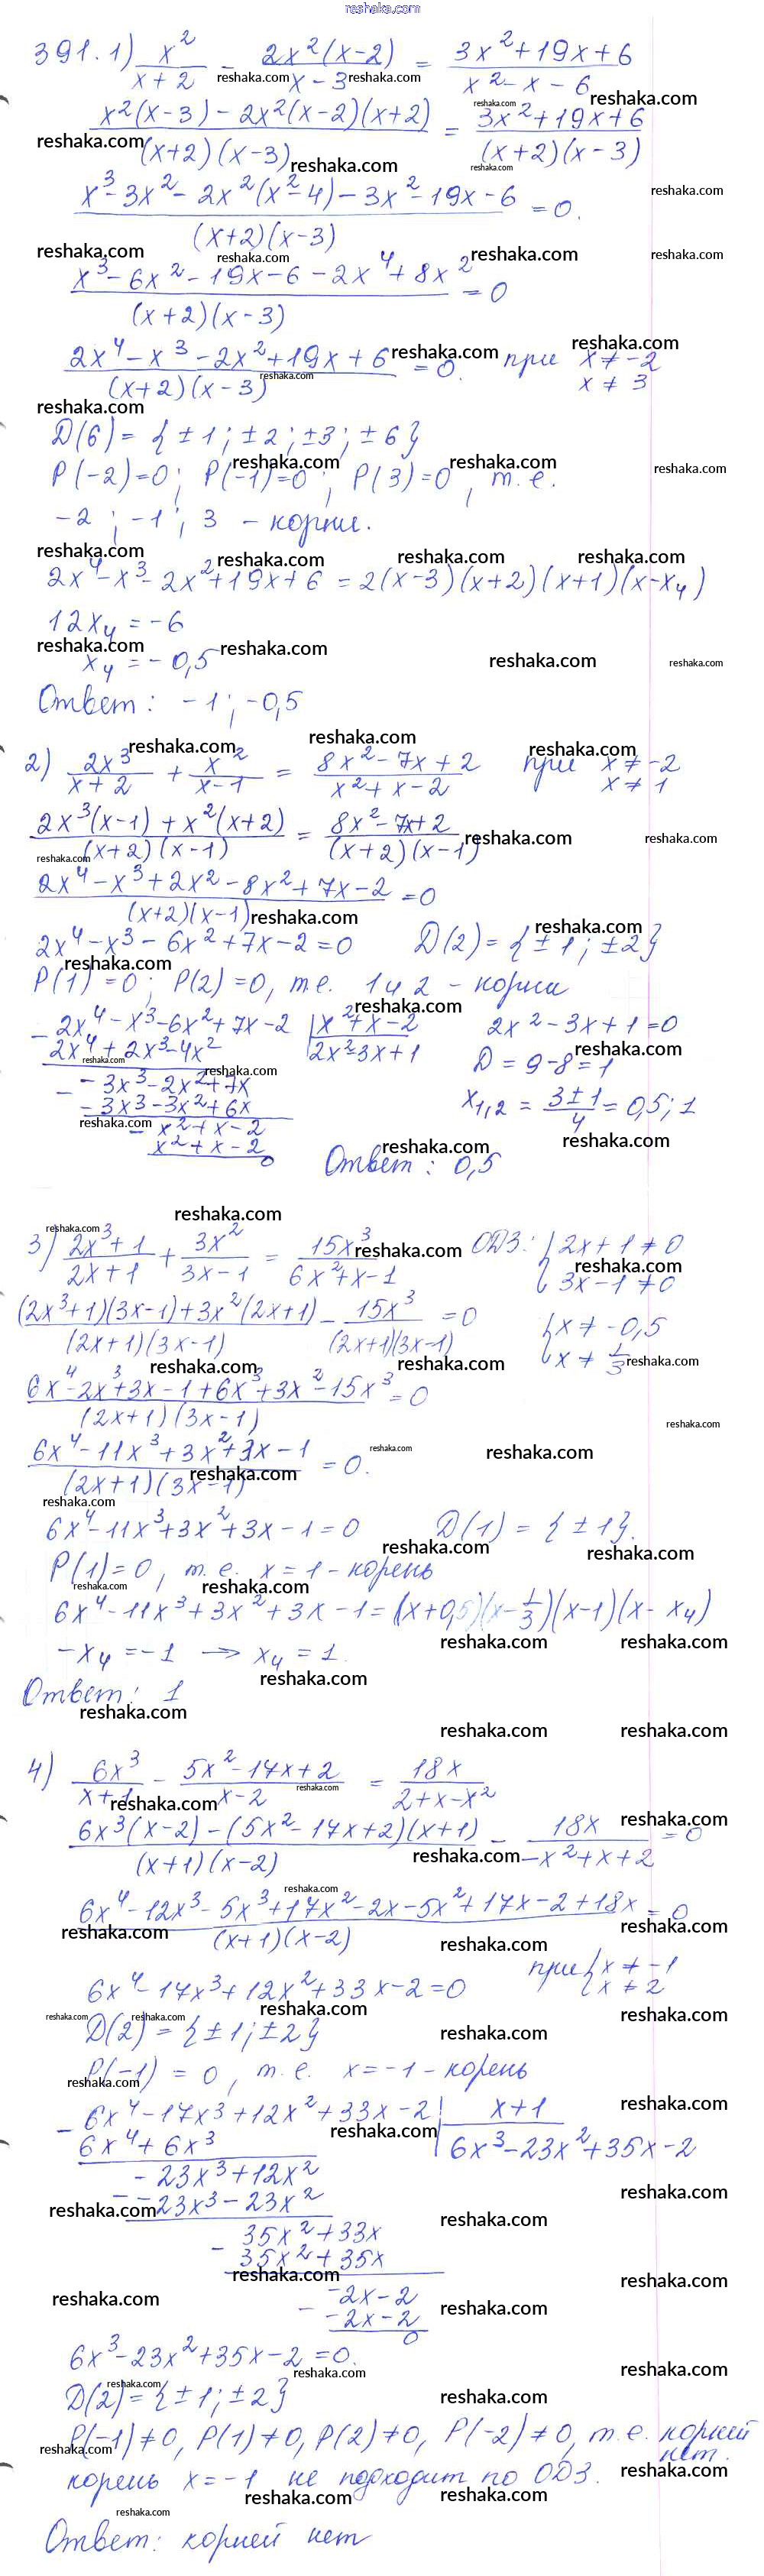 reshaka.com
391. 1) x²/(x+2) - 2x²(x-2)/(x-3) = (3x²+19x+6)/(x²-x-6)
(x²(x-3) - 2x²(x-2)(x+2))/((x+2)(x-3)) = (3x²+19x+6)/((x+2)(x-3))
(x³-3x²-2x²(x²-4)-3x²-19x-6)/((x+2)(x-3)) = 0.
(x³-6x²-19x-6-2x⁴+8x²)/((x+2)(x-3)) = 0
(2x⁴-x³-2x²+19x+6)/((x+2)(x-3)) = 0. при x≠-2 x≠3
D(6) = {±1; ±2; ±3; ±6}
P(-2)=0; P(-1)=0; P(3)=0, т.е.
-2; -1; 3 - корни.
2x⁴-x³-2x²+19x+6 = 2(x-3)(x+2)(x+1)(x-x₄)
12x₄ = -6
x₄ = -0,5
Ответ: -1; -0,5
2) 2x³/(x+2) + x²/(x-1) = (8x²-7x+2)/(x²+x-2) при x≠-2 x≠1
(2x³(x-1)+x²(x+2))/((x+2)(x-1)) = (8x²-7x+2)/((x+2)(x-1))
(2x⁴-x³+2x²-8x²+7x-2)/((x+2)(x-1)) = 0
2x⁴-x³-6x²+7x-2=0 D(2)={±1; ±2}
P(1)=0; P(2)=0, т.е. 1 и 2 - корни
2x⁴-x³-6x²+7x-2 | x²+x-2 2x²-3x+1=0
2x⁴+2x³-4x² 2x²-3x+1 D=9-8=1
-3x³-2x²+7x
-3x³-3x²+6x x₁,₂ = (3±1)/4 = 0,5; 1
x²+x-2
x²+x-2
0 Ответ: 0,5
3) (2x³+1)/(2x+1) + 3x²/(3x-1) = 15x³/(6x²+x-1) ОДЗ: {2x+1≠0 3x-1≠0
((2x³+1)(3x-1)+3x²(2x+1))/((2x+1)(3x-1)) - 15x³/((2x+1)(3x-1)) = 0 {x≠-0,5 x≠1/3
(6x⁴-2x³+3x-1+6x³+3x²-15x³)/((2x+1)(3x-1)) = 0
(6x⁴-11x³+3x²+3x-1)/((2x+1)(3x-1)) = 0.
6x⁴-11x³+3x²+3x-1=0 D(1)={±1}.
P(1)=0, т.е. x=1 - корень
6x⁴-11x³+3x²+3x-1=(x+0,5)(x-1/3)(x-1)(x-x₄)
-x₄=-1 → x₄=1.
Ответ: 1
4) 6x³/(x+1) - (5x²-17x+2)/(x-2) = 18x/(2+x-x²)
(6x³(x-2)-(5x²-17x+2)(x+1))/((x+1)(x-2)) - 18x/(-x²+x+2) = 0
(6x⁴-12x³-5x³+17x²-2x-5x²+17x-2+18x)/((x+1)(x-2)) = 0
6x⁴-17x³+12x²+33x-2=0 при {x≠-1 x≠2
D(2)={±1; ±2}
P(-1)=0, т.е. x=-1 - корень
6x⁴-17x³+12x²+33x-2 | x+1
6x⁴+6x³ 6x³-23x²+35x-2
-23x³+12x²
-23x³-23x²
35x²+33x
35x²+35x
-2x-2
-2x-2
0
6x³-23x²+35x-2=0.
D(2)={±1; ±2}
P(-1)≠0, P(1)≠0, P(2)≠0, P(-2)≠0, т.е. корней нет.
корень x=-1 не подходит по ОДЗ.
Ответ: корней нет